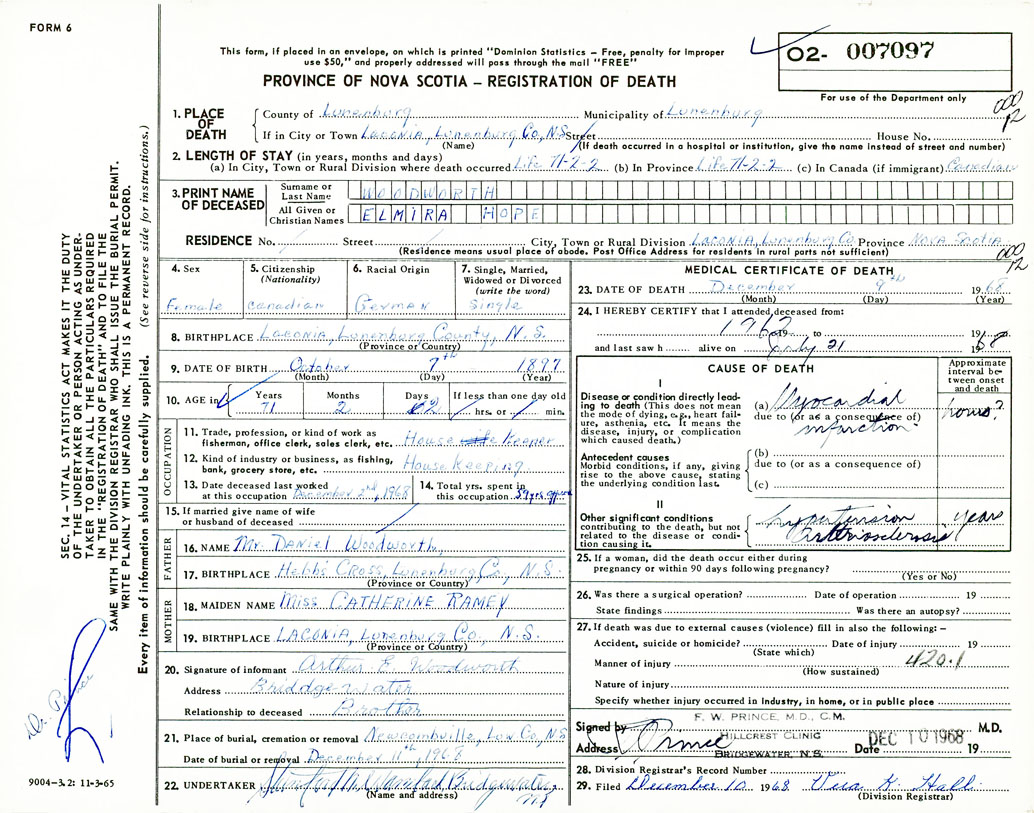 FORM 6
This form, if placed in an envelope, on which is printed "Dominion Statistics – Free, penalty for improper
use $50," and properly addressed will pass through the mail "FREE"
PROVINCE OF NOVA SCOTIA – REGISTRATION OF DEATH
02- 007097
For use of the Department only
000
12
SEC. 14 – VITAL STATISTICS ACT MAKES IT THE DUTY
OF THE UNDERTAKER OR PERSON ACTING AS UNDER-
TAKER TO OBTAIN ALL THE PARTICULARS REQUIRED
IN THE "REGISTRATION OF DEATH" AND TO FILE THE
SAME WITH THE DIVISION REGISTRAR WHO SHALL ISSUE THE BURIAL PERMIT.
WRITE PLAINLY WITH UNFADING INK. THIS IS A PERMANENT RECORD.
Every item of information should be carefully supplied. (See reverse side for instructions.)
1. PLACE OF DEATH
County of Lunenburg Municipality of Lunenburg
If in City or Town Laconia, Lunenburg Co, N.S Street House No.
(Name) (If death occurred in a hospital or institution, give the name instead of street and number)
2. LENGTH OF STAY (in years, months and days)
(a) In City, Town or Rural Division where death occurred Life 71-2-2 (b) In Province Life 71-2-2 (c) In Canada (if immigrant) Canadian
3. PRINT NAME OF DECEASED
Surname or Last Name WOODWORTH
All Given or Christian Names ELMIRA HOPE
RESIDENCE No. Street City, Town or Rural Division Laconia, Lunenburg Co Province Nova Scotia
(Residence means usual place of abode. Post Office Address for residents in rural parts not sufficient)
000
12
4. Sex
Female
5. Citizenship
(Nationality)
Canadian
6. Racial Origin
German
7. Single, Married,
Widowed or Divorced
(write the word)
Single
8. BIRTHPLACE Laconia, Lunenburg County, N.S.
(Province or Country)
9. DATE OF BIRTH October 7th 1897
(Month) (Day) (Year)
10. AGE in Years Months Days If less than one day old
71 2 2 hrs. or min.
OCCUPATION
11. Trade, profession, or kind of work as
fisherman, office clerk, sales clerk, etc. House Keeper
12. Kind of industry or business, as fishing,
bank, grocery store, etc. House Keeping
13. Date deceased last worked
at this occupation December 2nd, 1968
14. Total yrs. spent in
this occupation 59 yrs
15. If married give name of wife
or husband of deceased
FATHER
16. NAME Mr. Daniel Woodworth,
17. BIRTHPLACE Hebbs Cross, Lunenburg Co, N.S.
(Province or Country)
MOTHER
18. MAIDEN NAME Miss CATHERINE RAMEY
19. BIRTHPLACE LACONIA, Lunenburg Co., N.S.
(Province or Country)
20. Signature of informant Arthur E. Woodworth
Address Bridgewater
Relationship to deceased Brother
21. Place of burial, cremation or removal Newcombville, Lun Co, NS
Date of burial or removal December 11th, 1968
22. UNDERTAKER Bridgewater
NS
(Name and address)
Dr. Prince
9004-3.2: 11-3-65
MEDICAL CERTIFICATE OF DEATH
23. DATE OF DEATH December 9th 1968
(Month) (Day) (Year)
24. I HEREBY CERTIFY that I attended deceased from:
to 19
and last saw h alive on July 31 1968
CAUSE OF DEATH
Approximate interval between onset and death
I
Disease or condition directly lead-
ing to death (This does not mean
the mode of dying, e.g., heart fail-
ure, asthenia, etc. It means the
disease, injury, or complication
which caused death.)
(a) Myocardial
due to (or as a consequence of)
infarction
hours?
Antecedent causes
Morbid conditions, if any, giving
rise to the above cause, stating
the underlying condition last.
(b)
due to (or as a consequence of)
(c)
II
Other significant conditions
contributing to the death, but not
related to the disease or condi-
tion causing it.
hypertension years
Arteriosclerosis
25. If a woman, did the death occur either during
pregnancy or within 90 days following pregnancy?
(Yes or No)
26. Was there a surgical operation? Date of operation 19
State findings Was there an autopsy?
27. If death was due to external causes (violence) fill in also the following: –
Accident, suicide or homicide? Date of injury 19
(State which)
Manner of injury 420.1
(How sustained)
Nature of injury
Specify whether injury occurred in Industry, in home, or in public place
F. W. PRINCE, M.D., C.M.
Signed by Prince HILLCREST CLINIC M.D.
Address BRIDGEWATER, N.S. Date DEC 10 1968 19
28. Division Registrar's Record Number
29. Filed December 10 1968 Vera K. Hall
(Division Registrar)